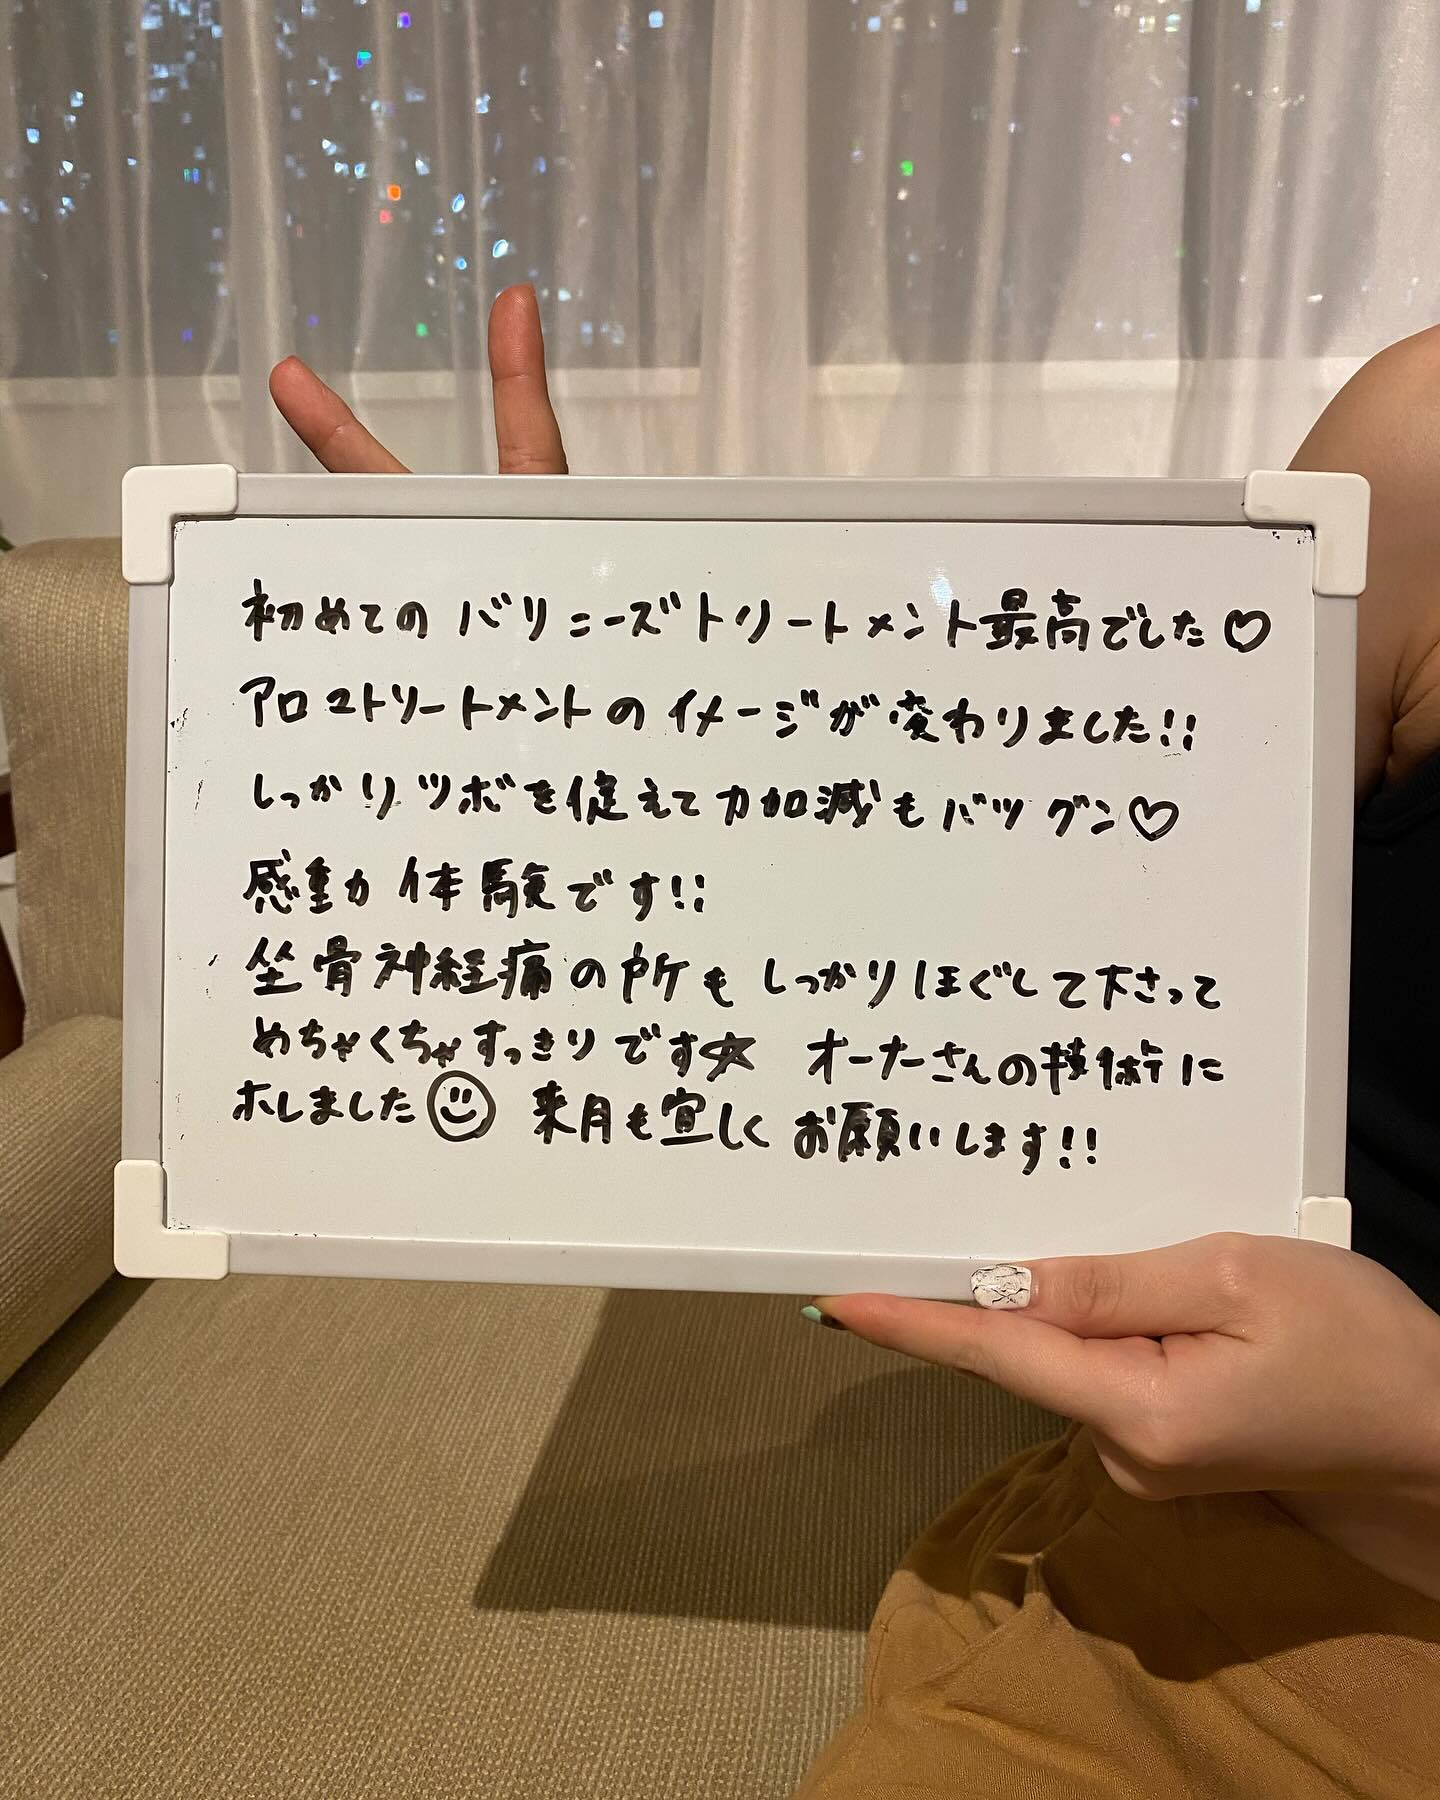 初めてのバリニーズトリートメント最高でした♡
アロマトリートメントのイメージが変わりました!!
しっかりツボを促えて力加減もバツグン♡
感動体験です!!
坐骨神経痛の所もしっかりほぐして下さって
めちゃくちゃすっきりです☆ オーナーさんの技術に
ホレました☺ 来月も宜しくお願いします!!